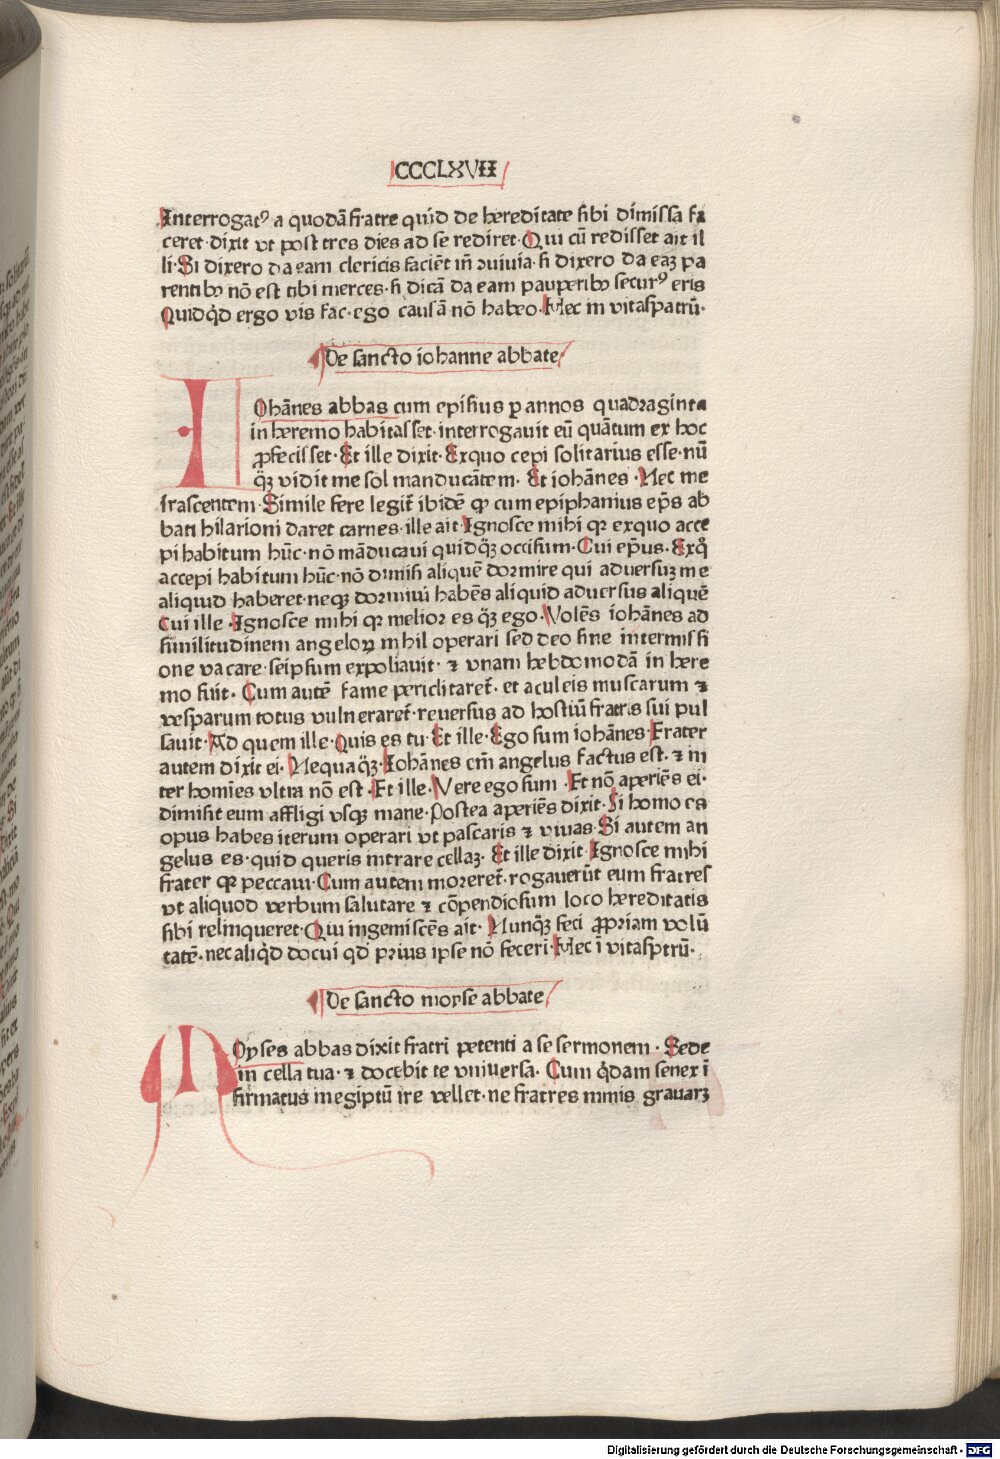 CCCLXVII
Interrogatꝰ a quodā fratre quid de hereditate sibi dimissa fa
ceret·dixit vt post tres dies ad se rediret·Qui cū redisset ait il
li·Si dixero da eam clericis facient in ꝯuiuia·si dixero da eaꝫ pa
rentibꝫ nō est tibi merces·si dicā da eam pauperibꝫ securꝰ eris
Quidq̄d ergo vis fac·ego causā nō habeo·Hec in vitaspatrū·
De sancto iohanne abbate
IOhānes abbas cum episius ꝑ annos quadraginta
in heremo habitasset·interrogauit eū quātum ex hoc
ꝓfecisset·Et ille dixit·Exquo cepi solitarius esse·nū
q̄ꝫ vidit me sol manducātem·Et iohānes·Nec me
irascentem·Simile fere legit᷑ ibidē ꝙ cum epiphanius ep̄s ab
bati hilarioni daret carnes·ille ait·Ignosce mihi qꝛ exquo acce
pi habitum hūc·nō māducaui quidq̄ꝫ occisum·Cui ep̄us·Exq̊
accepi habitum hūc·nō dimisi aliquē dormire qui aduersuꝫ me
aliquid haberet·neqꝫ dormiui habēs aliquid aduersus aliquē
Cui ille·Ignosce mihi qꝛ melior es q̄ꝫ ego·Volēs iohānes ad
similitudinem angeloꝝ nihil operari sed deo sine intermissi
one vacare·seipsum expoliauit·⁊ vnam hebdomodā in here
mo fuit·Cum autē fame periclitaret᷑·et aculeis muscarum ⁊
vesparum totus vulneraret᷑·reuersus ad hostiū fratris sui pul
sauit·Ad quem ille·Quis es tu·Et ille·Ego sum iohānes·Frater
autem dixit ei·Nequaq̄ꝫ·Iohānes em̄ angelus factus est·⁊ in
ter homīes vltra nō est·Et ille·Vere ego sum·Et nō aperiēs ei·
dimisit eum affligi vsqꝫ mane·Postea aperiēs dixit·Si homo es
opus habes iterum operari vt pascaris ⁊ viuas·Si autem an
gelus es·quid queris intrare cellaꝫ·Et ille dixit·Ignosce mihi
frater qꝛ peccaui·Cum autem moreret᷑·rogauerūt eum fratres
vt aliquod verbum salutare ⁊ cōpendiosum loco hereditatis
sibi relinqueret·Qui ingemiscēs ait·Nunq̄ꝫ feci ꝓpriam volū
tatē·nec aliq̄d docui qd̄ prius ipse nō feceri·Hec ī vitasptrū·
De sancto moyse abbate
MOyses abbas dixit fratri petenti a se sermonem·Sede
in cella tua·⁊ docebit te vniuersa·Cum q̄dam senex ī
firmatus in egiptū ire vellet·ne fratres nimis grauarꝫ
Digitalisierung gefördert durch die Deutsche Forschungsgemeinschaft - DFG